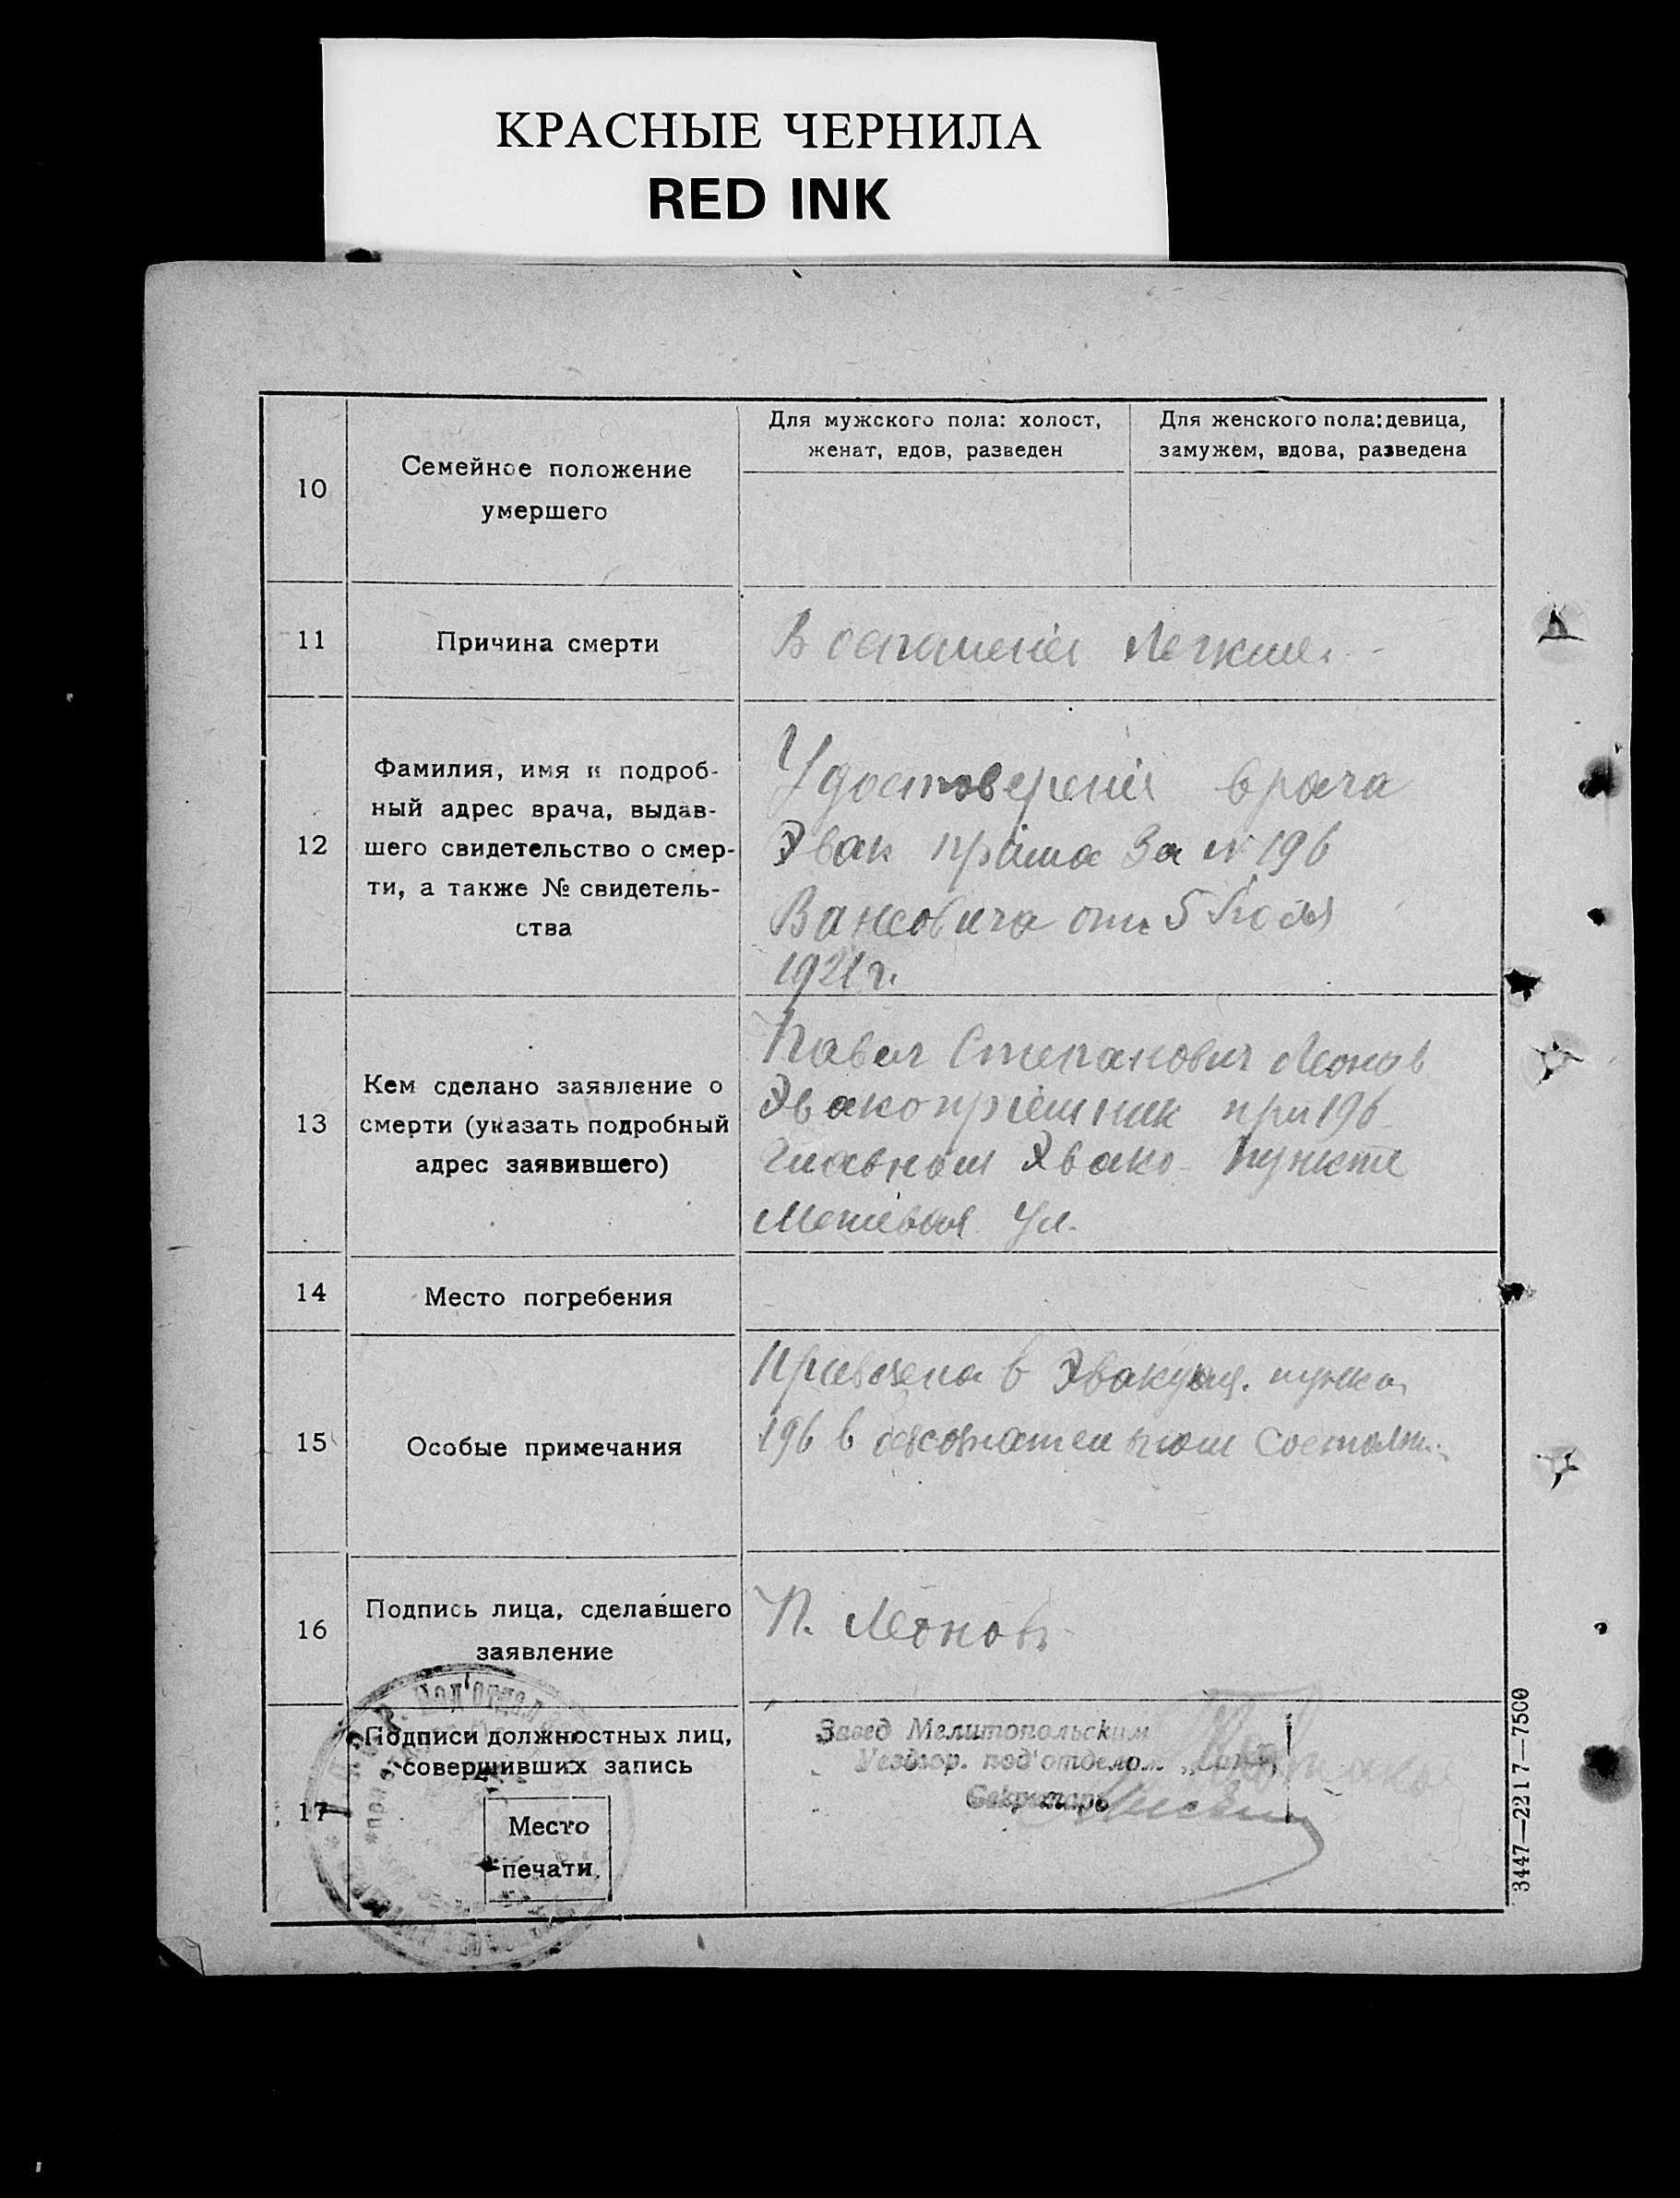 КРАСНЫЕ ЧЕРНИЛА
RED INK
10
Семейное положение
умершего
Для мужского пола: холост,
женат, вдов, разведен
Для женского пола: девица,
замужем, вдова, разведена
11
Причина смерти
Воспаления Легких.
12
Фамилия, имя и подроб-
ный адрес врача, выдав-
шего свидетельство о смер-
ти, а также № свидетель-
ства
Удостоверенія врача
Эвак пріима За № 196
от 5
1921 г.
13
Кем сделано заявление о
смерти (указать подробный
адрес заявившего)
Павел Степанович Леонов
Эвакопріемник при 196
главном Эвако пункте
Ул.
14
Место погребения
15
Особые примечания
в Эвакуац.
196 в
16
Подпись лица, сделавшего
заявление
П. Леонов
17
Подписи должностных лиц,
совершивших запись
Место
печати
Завед Мелитопольским
Уездгор. под'отделом
Секретарь
3447—2217—7500